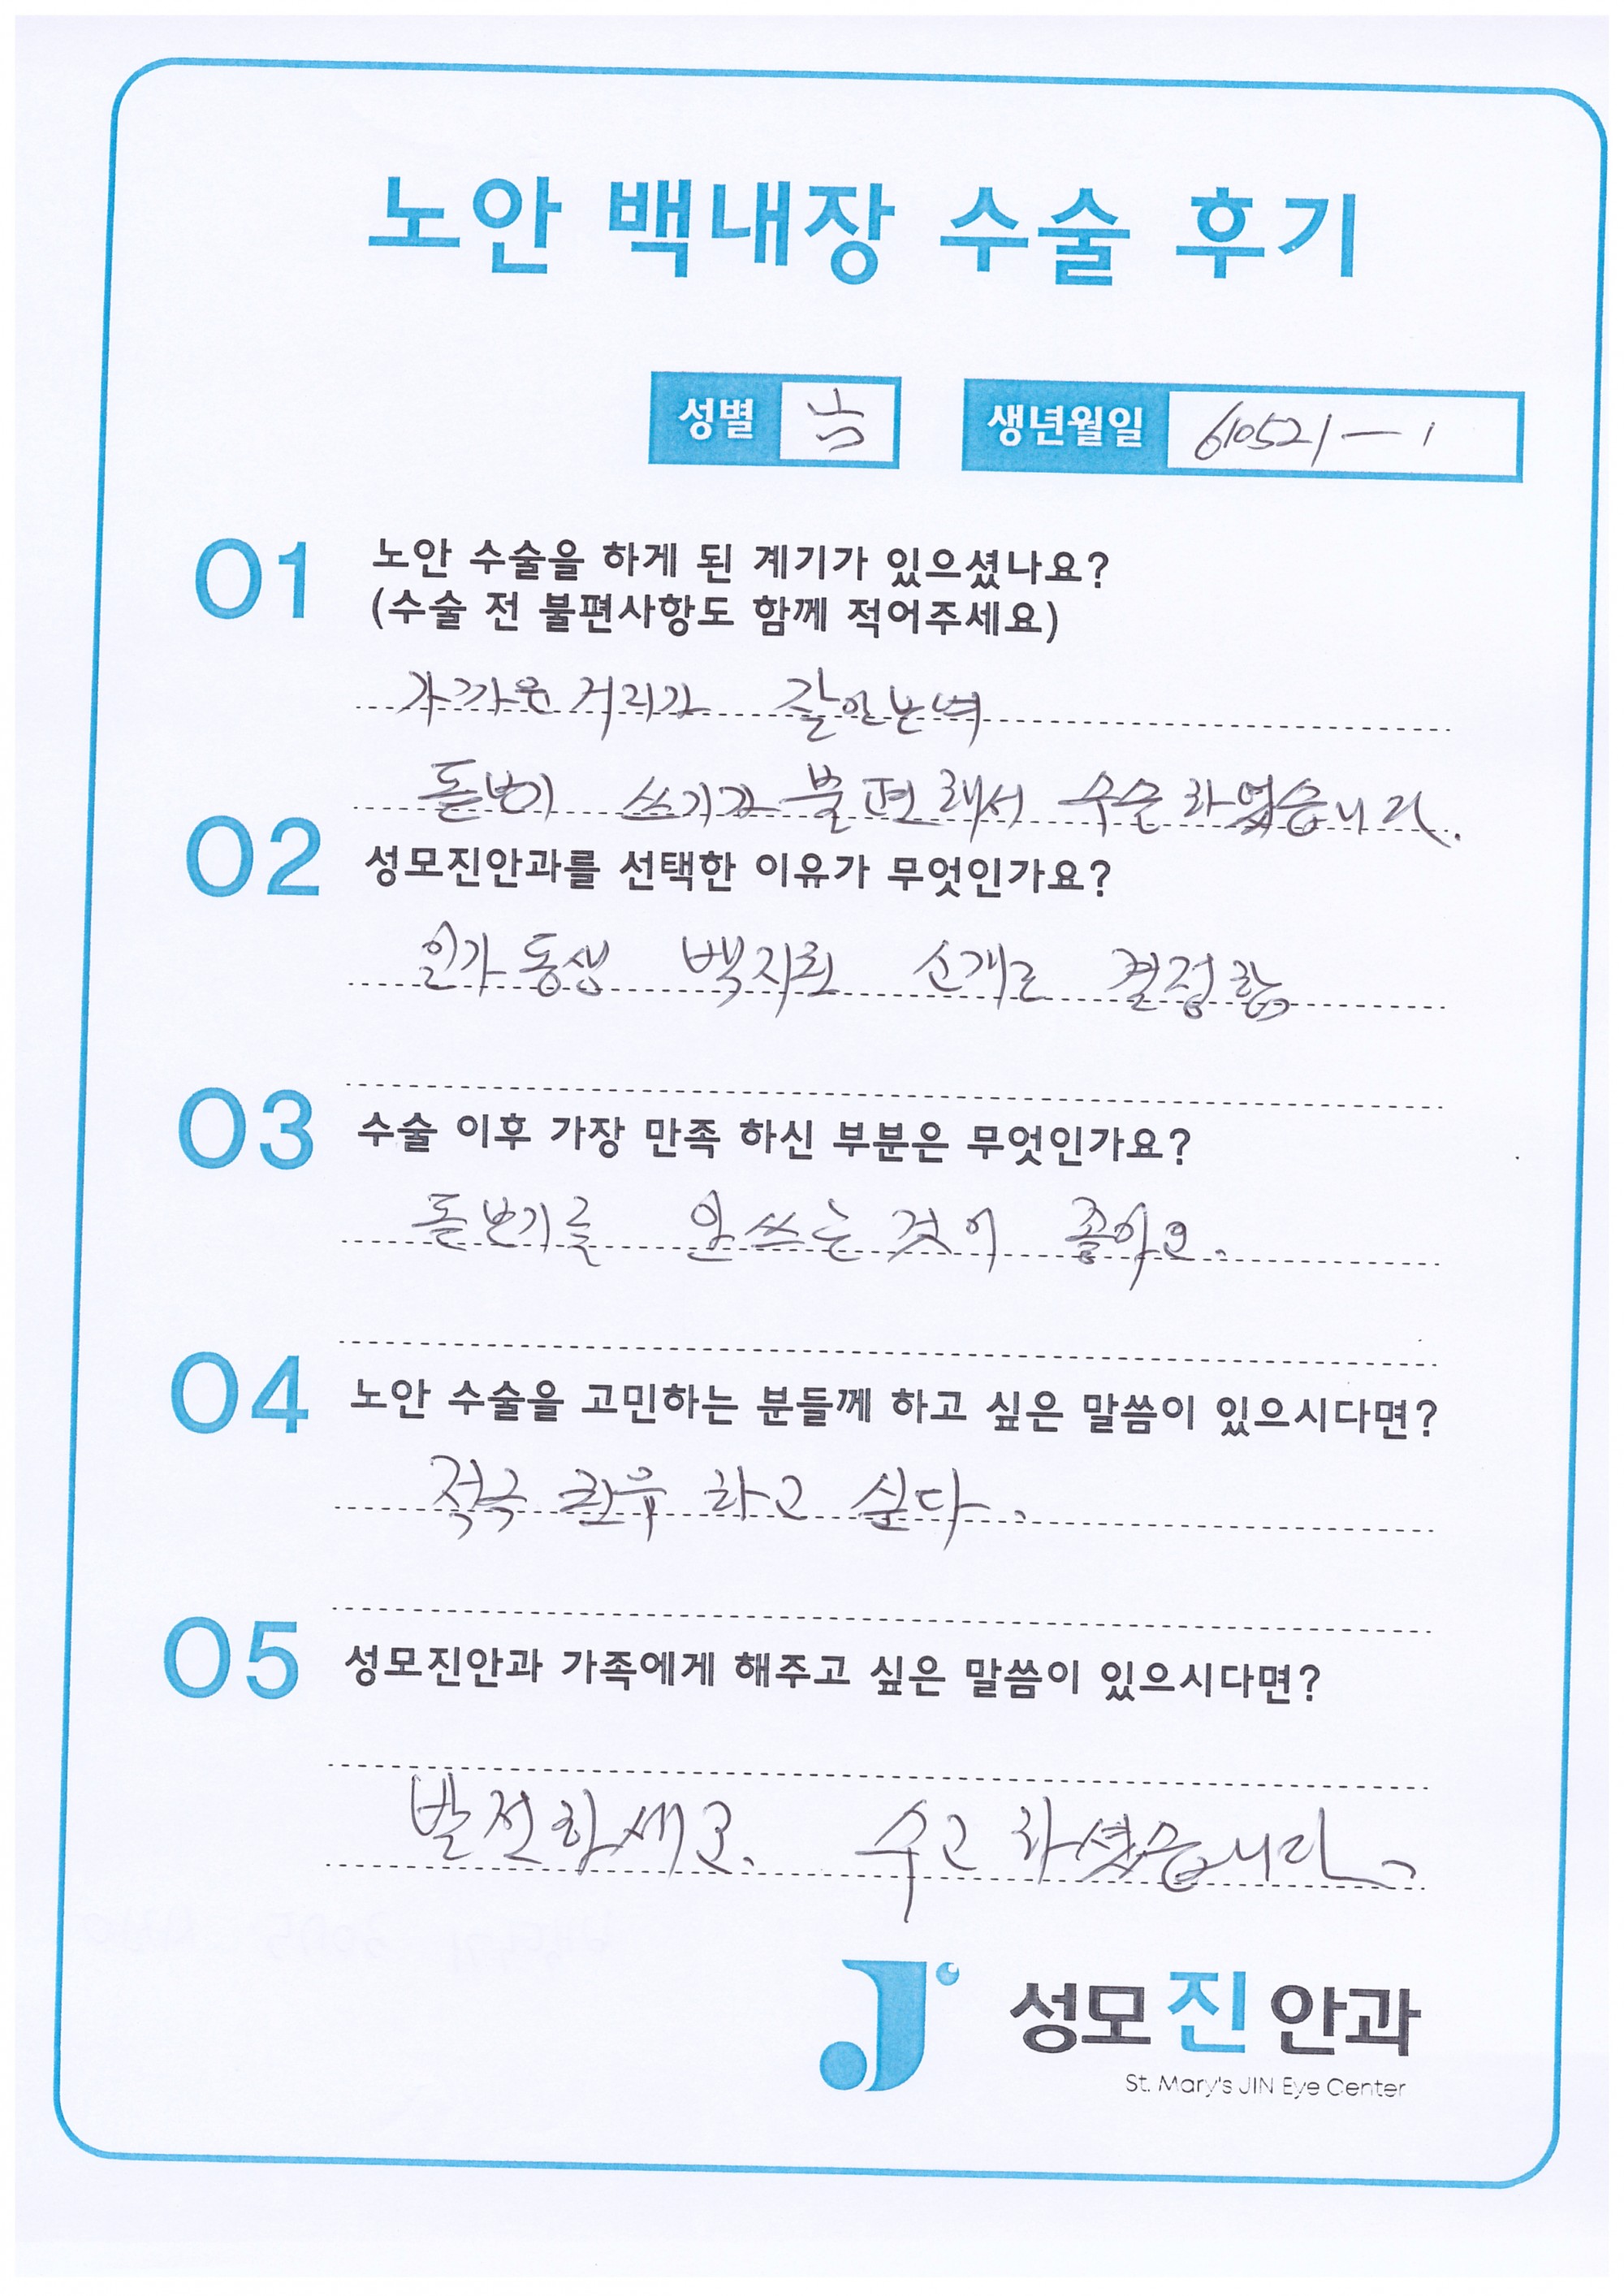 노안 백내장 수술 후기
성별 남 생년월일 610521-1
01 노안 수술을 하게 된 계기가 있으셨나요?
(수술 전 불편사항도 함께 적어주세요)
가까운 거리가 잘 안 보여
돋보기 쓰기가 불편해서 수술 하였습니다.
02 성모진안과를 선택한 이유가 무엇인가요?
동생 소개로 결정함
03 수술 이후 가장 만족 하신 부분은 무엇인가요?
돋보기를 안 쓰는 것이 좋아요.
04 노안 수술을 고민하는 분들께 하고 싶은 말씀이 있으시다면?
적극 권유 하고 싶다.
05 성모진안과 가족에게 해주고 싶은 말씀이 있으시다면?
발전하세요. 수고 하셨습니다.
성모진안과
St. Mary's JIN Eye Center